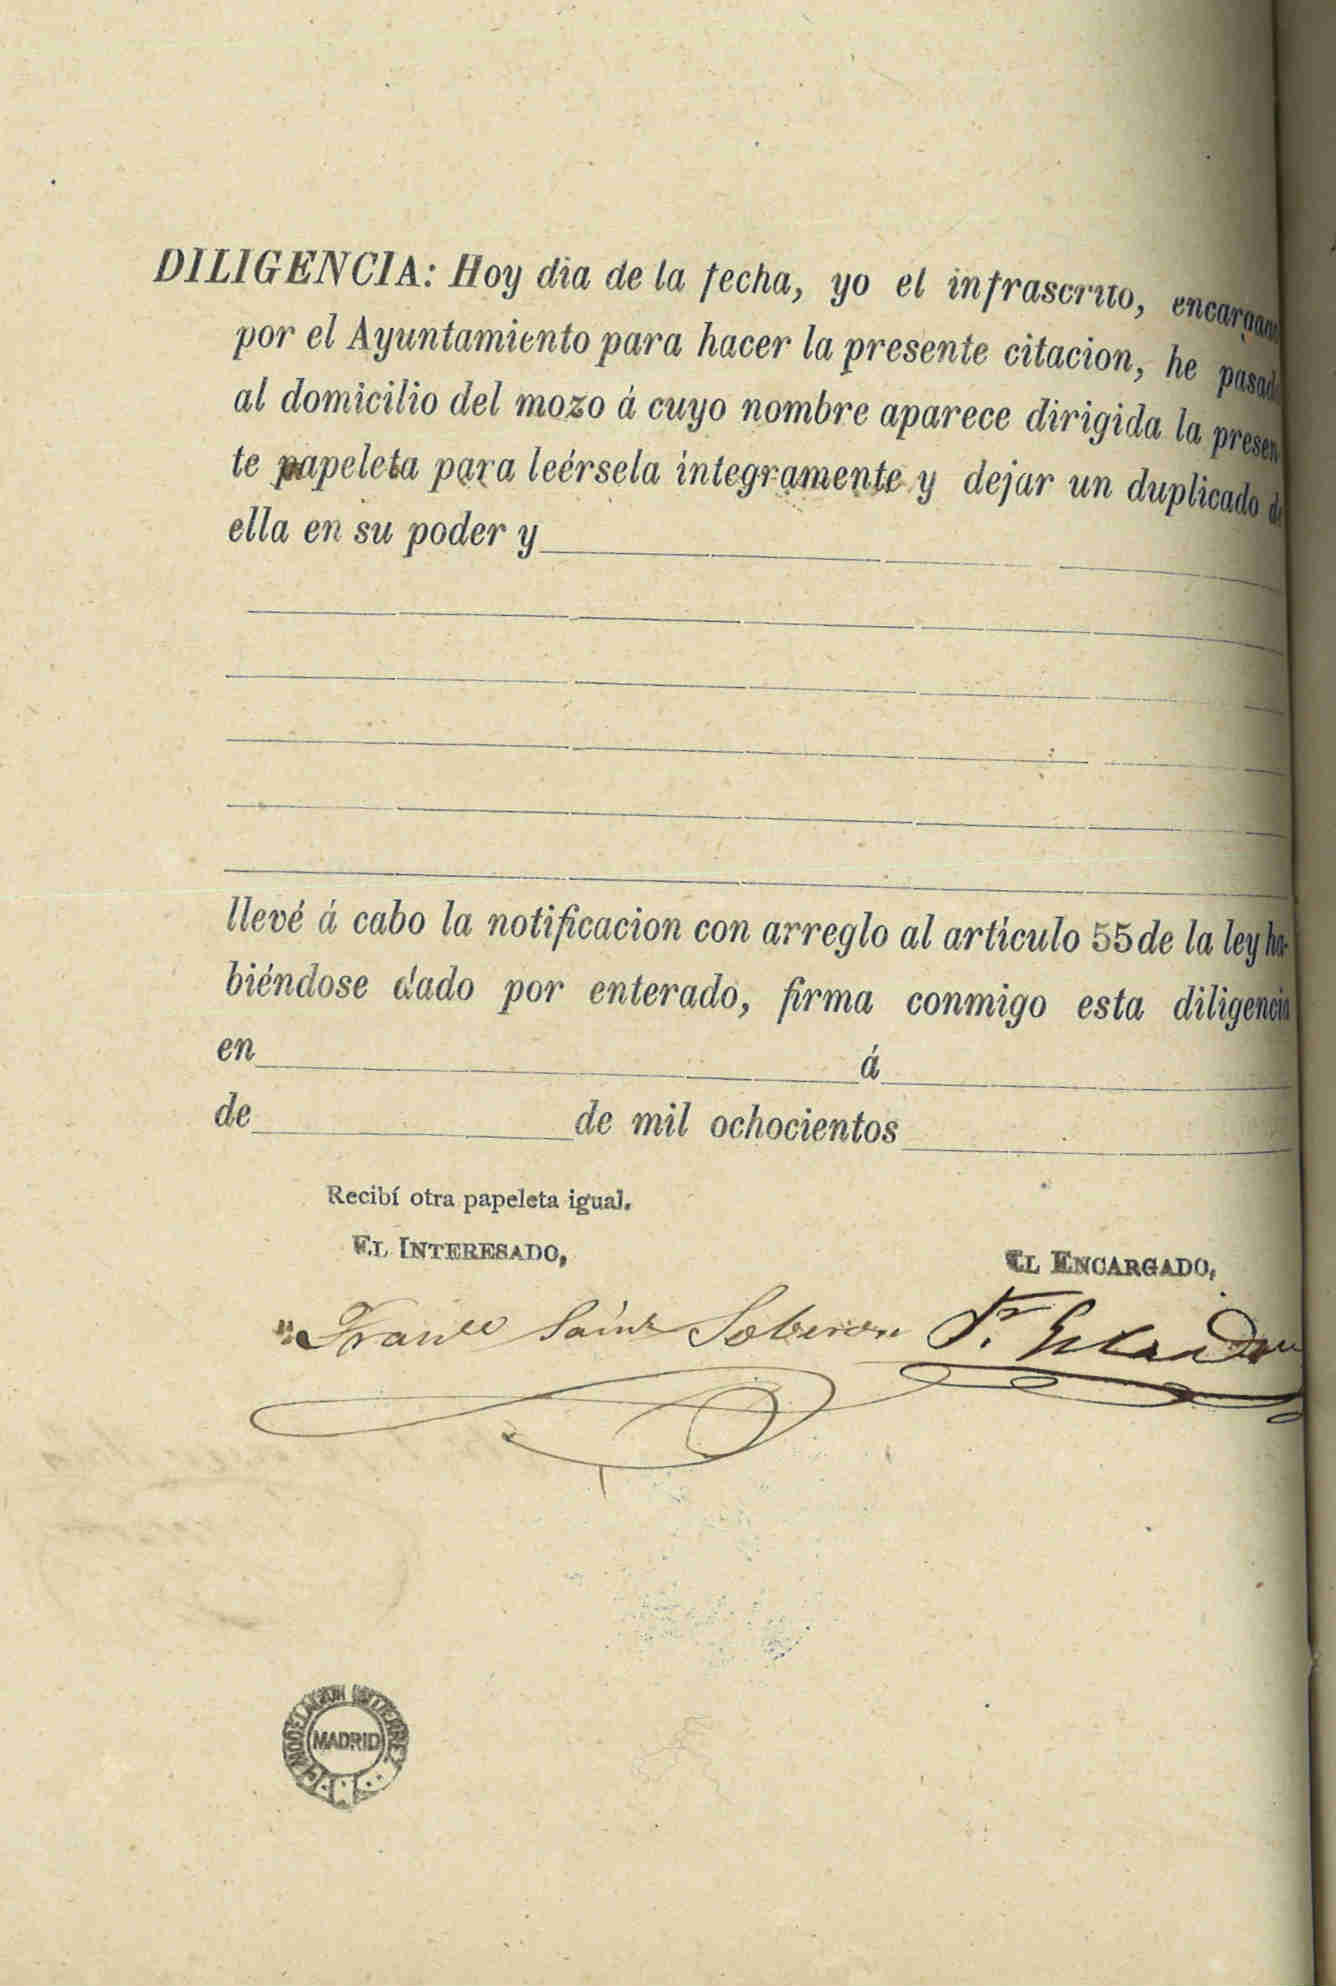 DILIGENCIA: Hoy dia de la fecha, yo el infrascrito, encargado
por el Ayuntamiento para hacer la presente citacion, he pasado
al domicilio del mozo á cuyo nombre aparece dirigida la presen
te papeleta para leérsela íntegramente y dejar un duplicado de
ella en su poder y
llevé á cabo la notificacion con arreglo al artículo 55 de la ley ha-
biéndose dado por enterado, firma conmigo esta diligencia
en á
de de mil ochocientos
Recibí otra papeleta igual.
EL INTERESADO,
EL ENCARGADO,
Sainz Soberon
MADRID